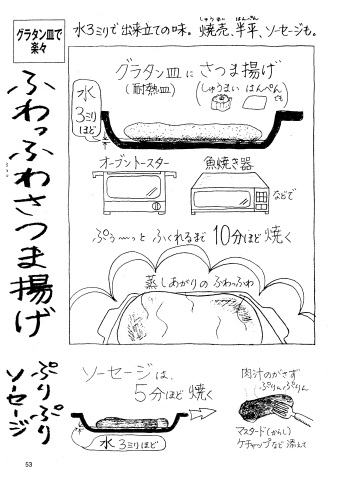 グラタン皿で
楽々
ふわっふわさつま揚げ
ぷりぷり
ソーセージ
水3ミリで出来立ての味。焼売、半平、ソーセージも。
しゅうまい
はんぺん
グラタン皿にさつま揚げ
(耐熱皿)
(しゅうまい はんぺん
でも)
水
3ミリ
ほど
オーブントースター
魚焼き器
などで
ぷぅ〜〜っとふくれるまで 10分ほど焼く
蒸しあがりのふわっふわ
ソーセージは、
5分ほど焼く
水 3ミリほど
肉汁のがさず
ぷりんぷりん
マスタード(からし)
ケチャップなど添えて
53